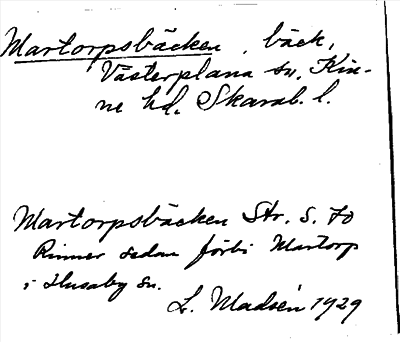 Martorpsbäcken, bäck,
Västerplana sn, Kin-
ne hd. Skarab. l.
Martorpsbäcken Str. S. 70
Rinner sedan förbi Martorp
i Husaby sn.
L. Madsén 1929